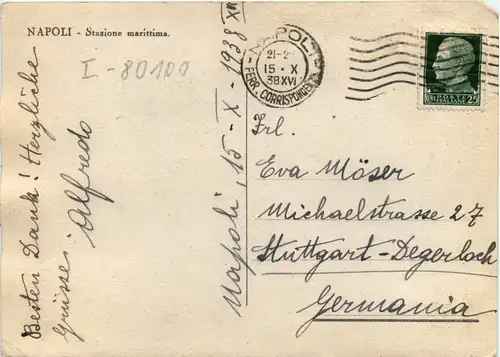 NAPOLI - Stazione marittima.
I-80100
Besten Dank! Herzliche
Grüsse: Alfredo
Napoli, 15-X-1938 XVI
NAPOLI
21-2
15 · X
38 XVI
FERR. CORRISPONDENZE
25
Frl.
Eva Möser
Michaelstrasse 27
Stuttgart-Degerloch
Germania